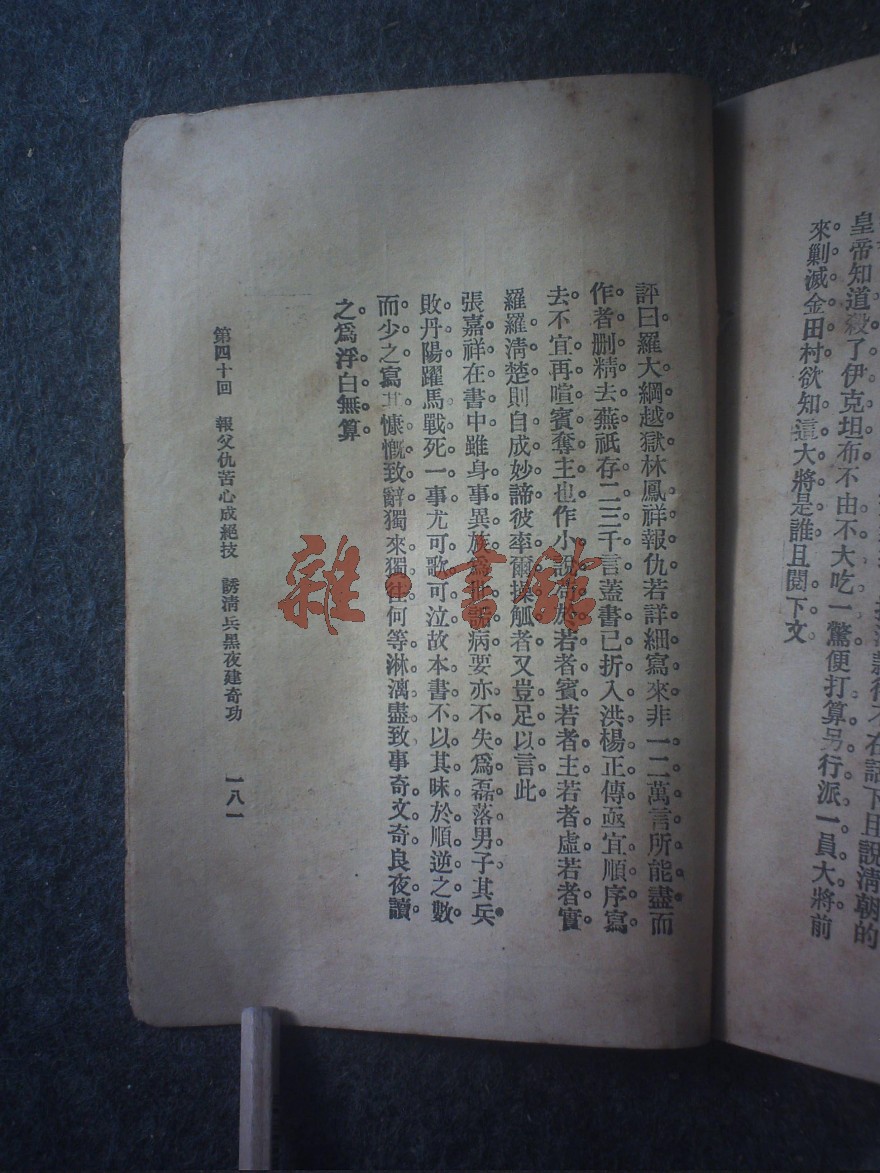 皇帝知道殺了伊克坦布不由不大吃一驚便打算另行派一員大將前
來剿滅金田村欲知這大將是誰且閱下文
評曰羅大綱越獄林鳳祥報仇若詳細寫來非一二萬言所能盡而
作者删精去蕪祇存二三千言蓋書已折入洪楊正傳亟宜順序寫
去不宜再喧賓奪主也作小說者於若者賓若者主若者虛若者實
羅羅清楚則自成妙諦彼率爾操觚者又豈足以言此
張嘉祥在書中雖身事異族爲世詬病要亦不失爲磊落男子其兵
敗丹陽躍馬戰死一事尤可歌可泣故本書不以其昧於順逆之數
而少之寫其慷慨致辭獨來獨往何等淋漓盡致事奇文奇良夜讀
之爲浮白無算
第四十回 報父仇苦心成絕技 誘清兵黑夜建奇功 一八一
雜·書館